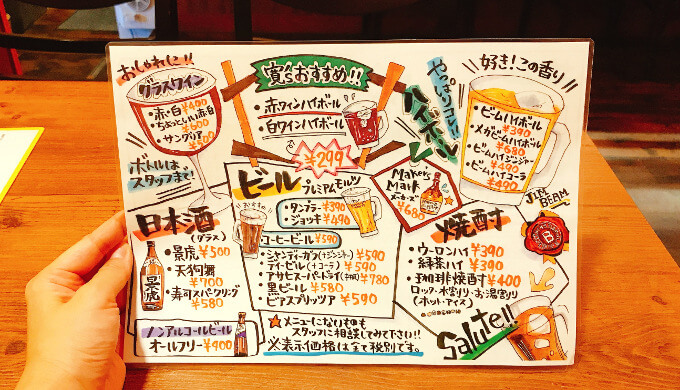 おしゃれに!!
グラスワイン
・赤・白 ¥400
・ちょっといい赤白 ¥600
・サングリア ¥500
ボトルは
スタッフまで!
寛'sおすすめ!!
・赤ワインハイボール
・白ワインハイボール
¥299
やっぱりココに!
ハイボール
好き!この香り
・ビームハイボール ¥390
・メガビームハイボール ¥680
・ビームハイジンジャー ¥490
・ビームハイコーラ ¥490
JIM BEAM
Maker's
Mark
メーカーズ
¥680
ビール
プレミアムモルツ
おすすめ
・タンブラー ¥390
・ジョッキ ¥490
コーヒービール ¥590
・シャンディーガフ(+ジンジャー) ¥590
・ディービル(+コーラ) ¥590
・アサヒスーパードライ(中瓶) ¥780
・黒ビール ¥580
・ビアスプリッツァ ¥590
★メニューにないものも
スタッフに相談してみて下さい!!
※表示価格は全て税別です。
日本酒
(グラス)
・景虎 ¥500
・天狗舞
¥700
・寿司スパークリング
¥580
景虎
ノンアルコールビール
オールフリー ¥400
焼酎
・ウーロンハイ ¥390
・緑茶ハイ ¥390
・珈琲焼酎 ¥400
ロック・水割り・お湯割り
(ホット・アイス)
Salute!!